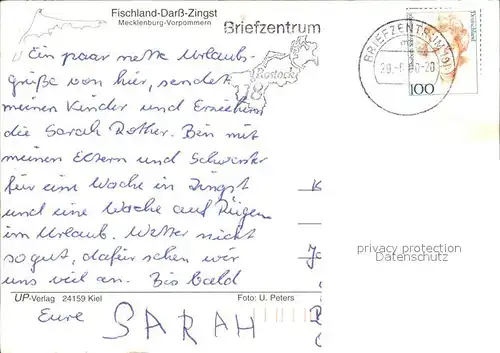 Fischland-Darß-Zingst
Mecklenburg-Vorpommern
Briefzentrum
BRIEFZENTRUM
Rostock
18
100
Ein paar nette Urlaubs-
grüße von hier, sendet
meinen Kinder und
die Sarah Rother. Bin mit
meinen Eltern und Schwester
für eine Woche in Zingst
und eine Woche auf Rügen
im Urlaub. Wetter nicht
so gut, dafür sehen wir
uns viel an. Bis bald
privacy protection
Datenschutz
UP-Verlag 24159 Kiel
Foto: U. Peters
Eure SARAH